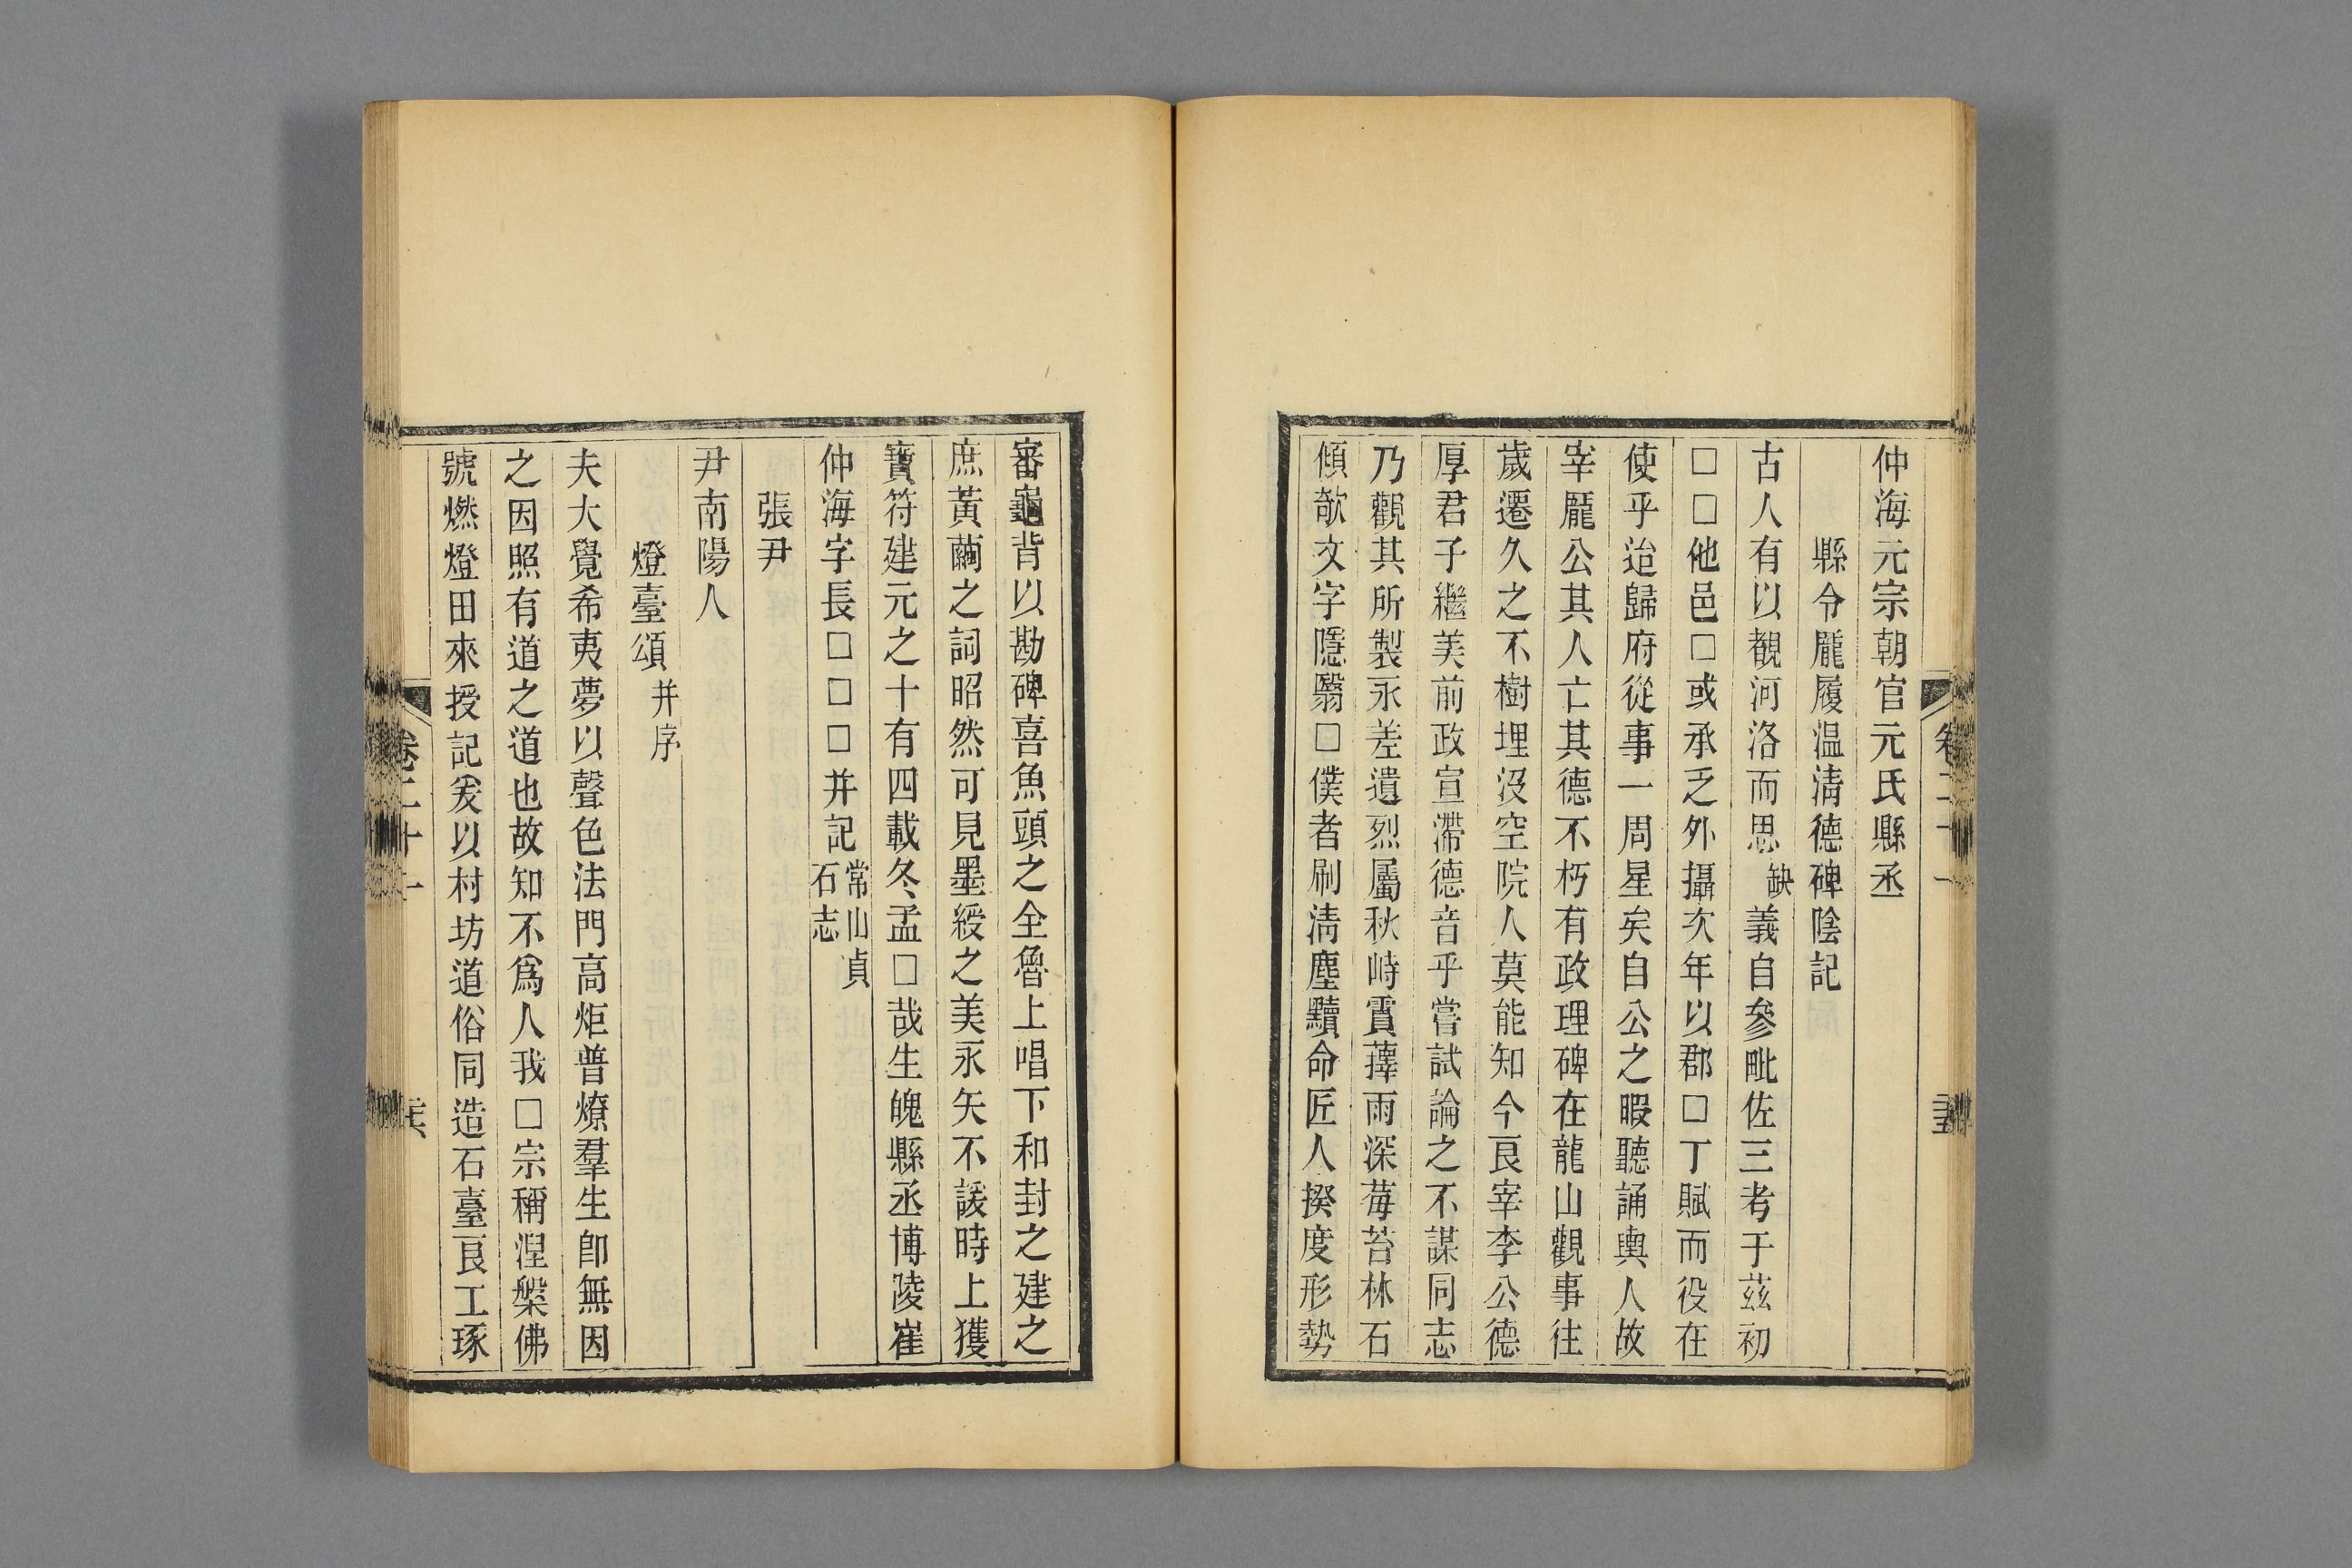 仲海元宗朝官元氏縣丞
縣令龎履温清德碑陰記
古人有以覩河洛而思缺義自參毗佐三考于茲初
□□他邑□或承乏外攝次年以郡□丁賦而役在
使乎迨歸府從事一周星矣自公之暇聽誦輿人故
宰龎公其人亡其德不朽有政理碑在龍山觀事往
歲遷久之不樹埋沒空院人莫能知今良宰李公德
厚君子繼美前政宣滯德音乎嘗試論之不謀同志
乃觀其所製永差遺烈屬秋峙霣蘀雨深莓苔林石
傾欹文字隱翳□僕者刷清塵黷命匠人揆度形勢
審龜背以勘碑喜魚頭之全魯上唱下和封之建之
庶黃薾之詞昭然可見墨綬之美永矢不諼時上獲
寶符建元之十有四載冬孟□哉生魄縣丞博陵崔
仲海字長□□□并記常山貞石志
張尹
尹南陽人
燈臺頌并序
夫大覺希夷夢以聲色法門高炬普燎羣生卽無因
之因照有道之道也故知不爲人我□宗稱涅槃佛
號燃燈田來授記爰以村坊道俗同造石臺良工琢
卷二十一